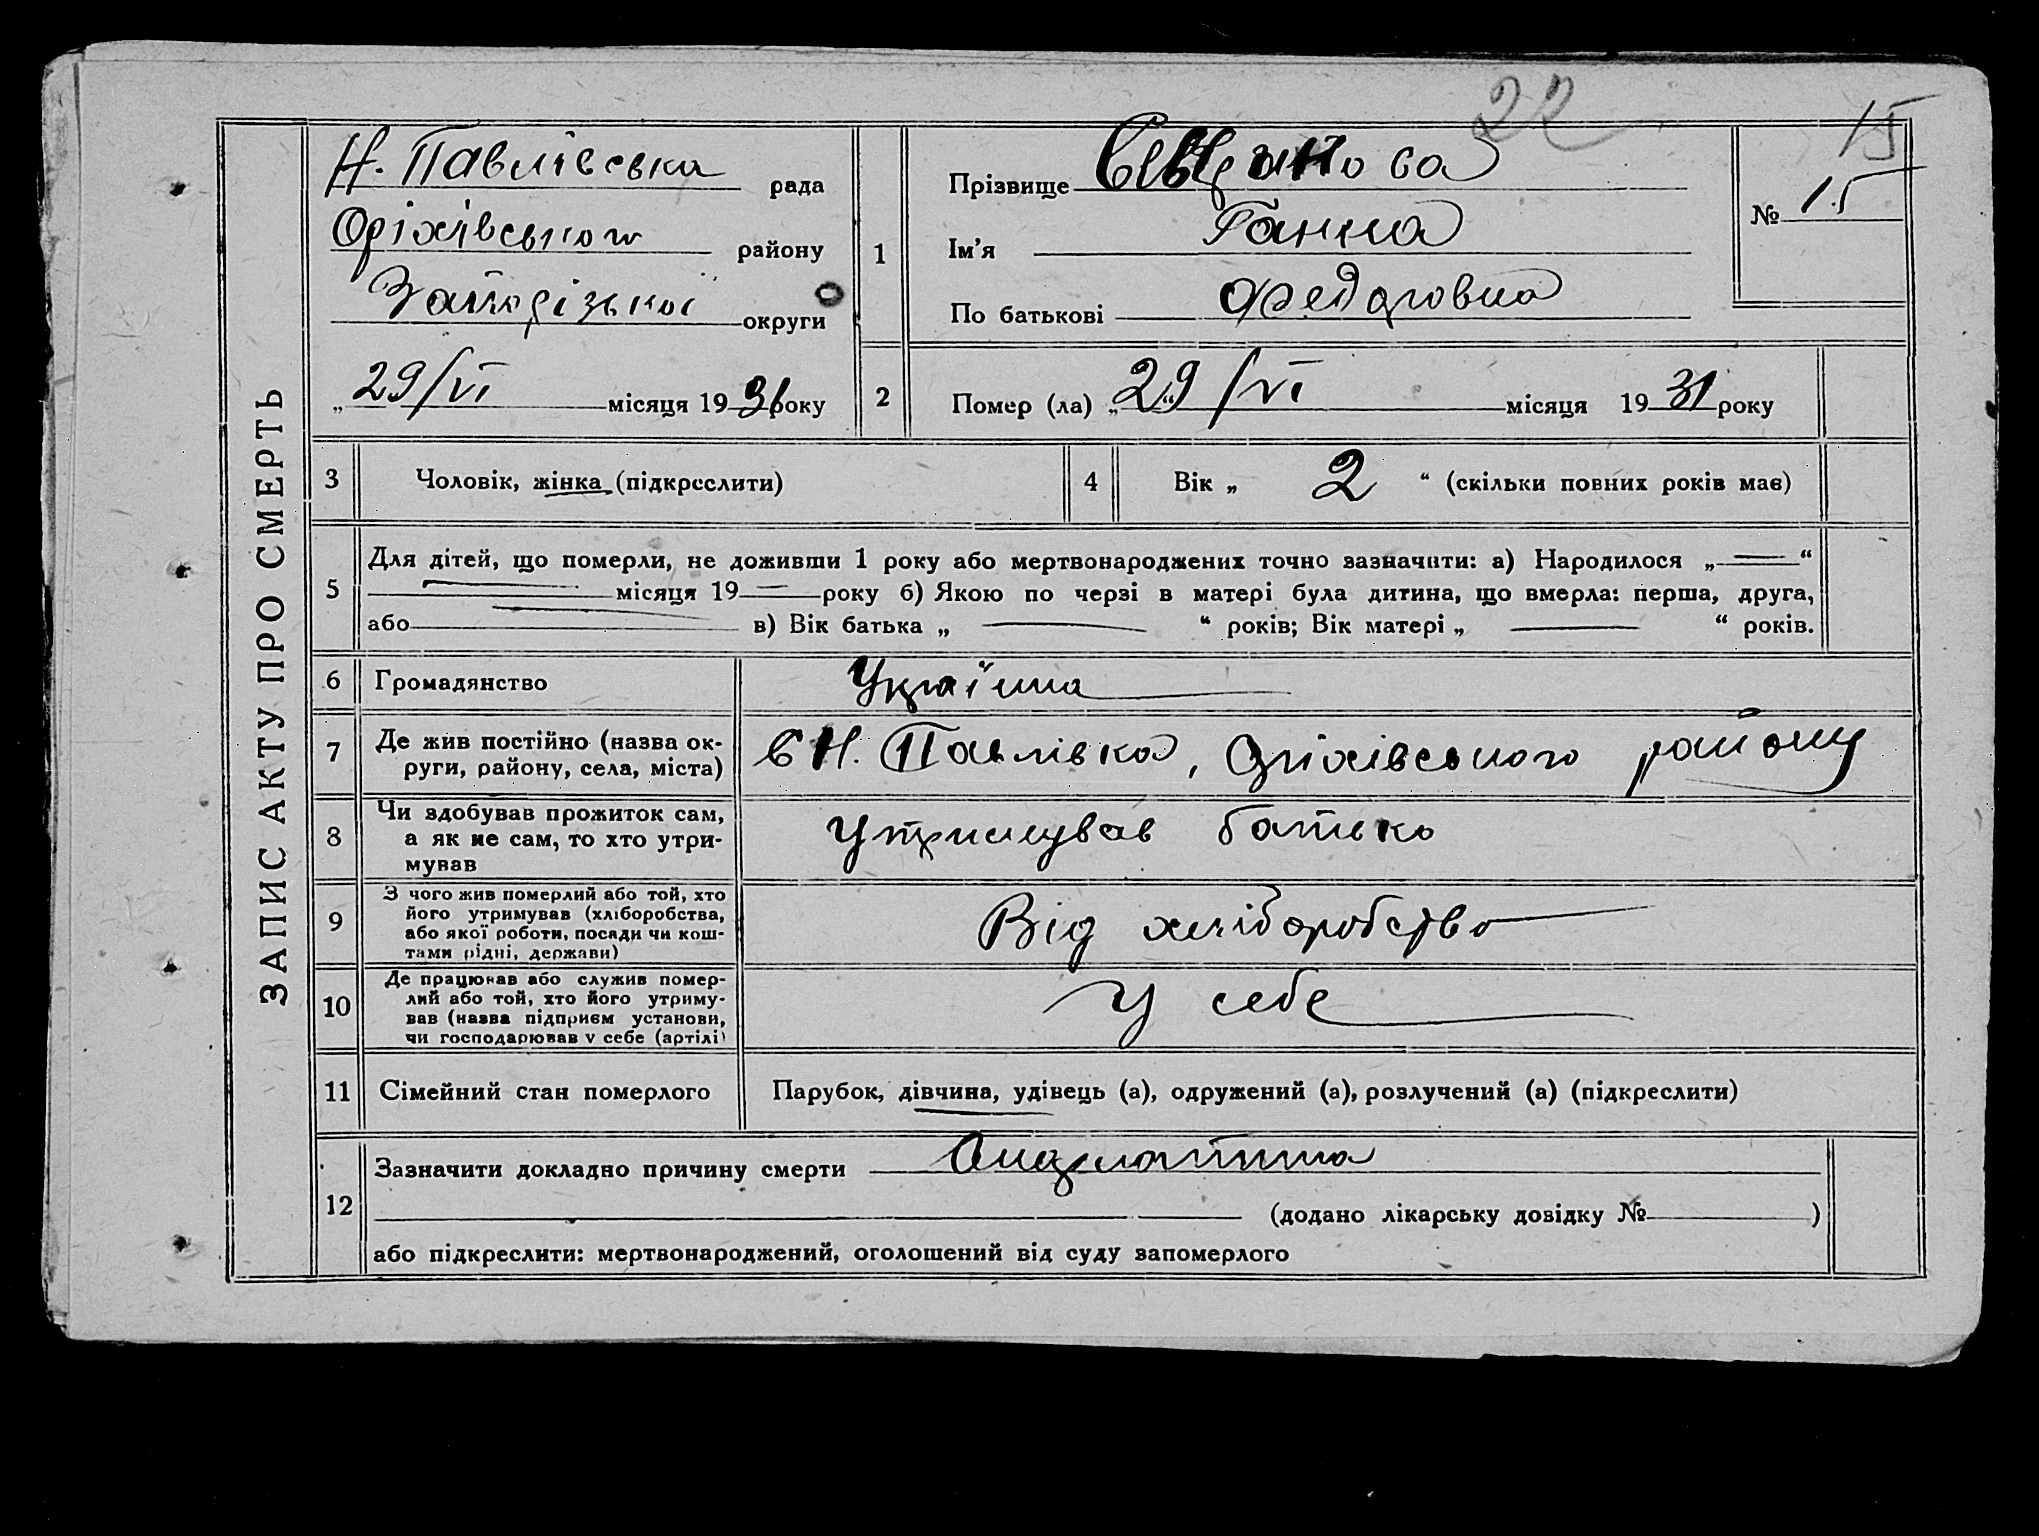 22
15
ЗАПИС АКТУ ПРО СМЕРТЬ
Н. Павлівська рада
Оріхівського району
Запорізької округи
„ 29/VI місяця 1931 року
1
Прізвище
Ім'я Ганна
По батькові Федоровна
№ 15
2
Помер (ла) „ 29 “ /VI місяця 1931 року
3
Чоловік, жінка (підкреслити)
4
Вік „ 2 “ (скільки повних років має)
5
Для дітей, що померли, не доживши 1 року або мертвонароджених точно зазначити: а) Народилося „ — “
— місяця 19 — року б) Якою по черзі в матері була дитина, що вмерла: перша, друга,
або — в) Вік батька „ — “ років; Вік матері „ — “ років.
6
Громадянство
Україна
7
Де жив постійно (назва ок-
руги, району, села, міста)
с Н. Павлівка, Оріхівського району
8
Чи здобував прожиток сам,
а як не сам, то хто утри-
мував
Утримував батько
9
З чого жив померлий або той, хто
його утримував (хліборобства,
або якої роботи, посади чи кош-
тами рідні, держави)
Від хліборобство
10
Де працював або служив помер-
лий або той, хто його утриму-
вав (назва підприєм установи,
чи господарював у себе (артілі)
У себе
11
Сімейний стан померлого
Парубок, дівчина, удівець (а), одружений (а), розлучений (а) (підкреслити)
12
Зазначити докладно причину смерти
(додано лікарську довідку № )
або підкреслити: мертвонароджений, оголошений від суду запомерлого